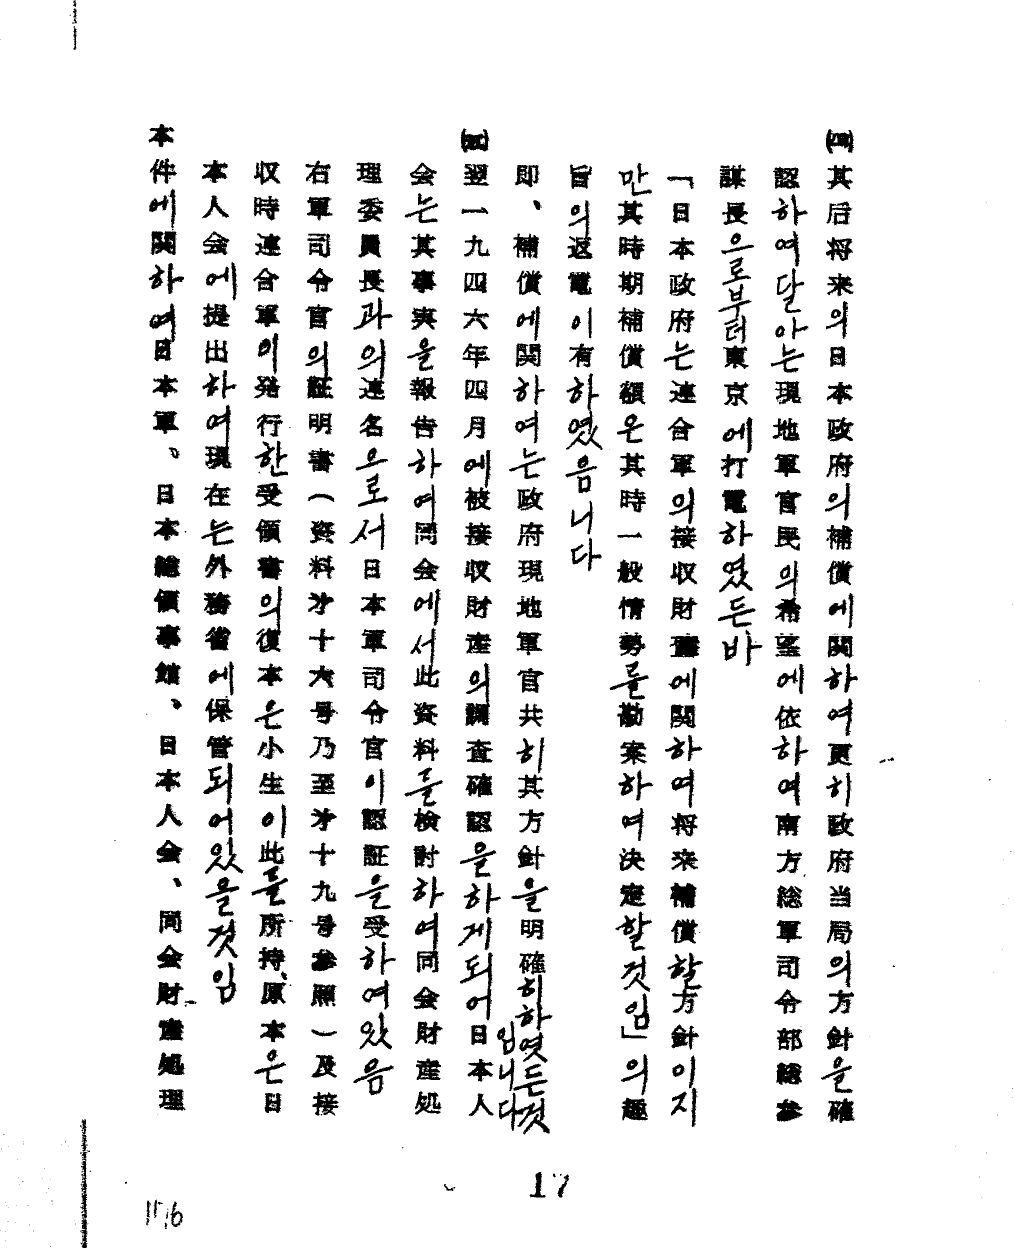 ㈣其后将来의日本政府의補償에関하여更히政府当局의方針을確
認하여달아는現地軍官民의希望에依하여南方総軍司令部総参
謀長으로부터東京에打電하였든바
「日本政府는連合軍의接収財産에関하여将来補償할方針이지
만其時期補償額은其時一般情勢를勘案하여決定할것임」의趣
旨의返電이有하였음니다
即、補償에関하여는政府現地軍官共히其方針을明確히하엿든것
입니다
㈤翌一九四六年四月에被接収財産의調査確認을하게되어日本人
会는其事実을報告하여同会에서此資料를検討하여同会財産処
理委員長과의連名으로서日本軍司令官이認証을受하여있음
右軍司令官의証明書(資料才十六号乃至才十九号参照)及接
収時連合軍이発行한受領書의復本은小生이此를所持、原本은日
本人会에提出하여現在는外務省에保管되어있을것임
本件에関하여日本軍、日本総領事館、日本人会、同会財産処理
17